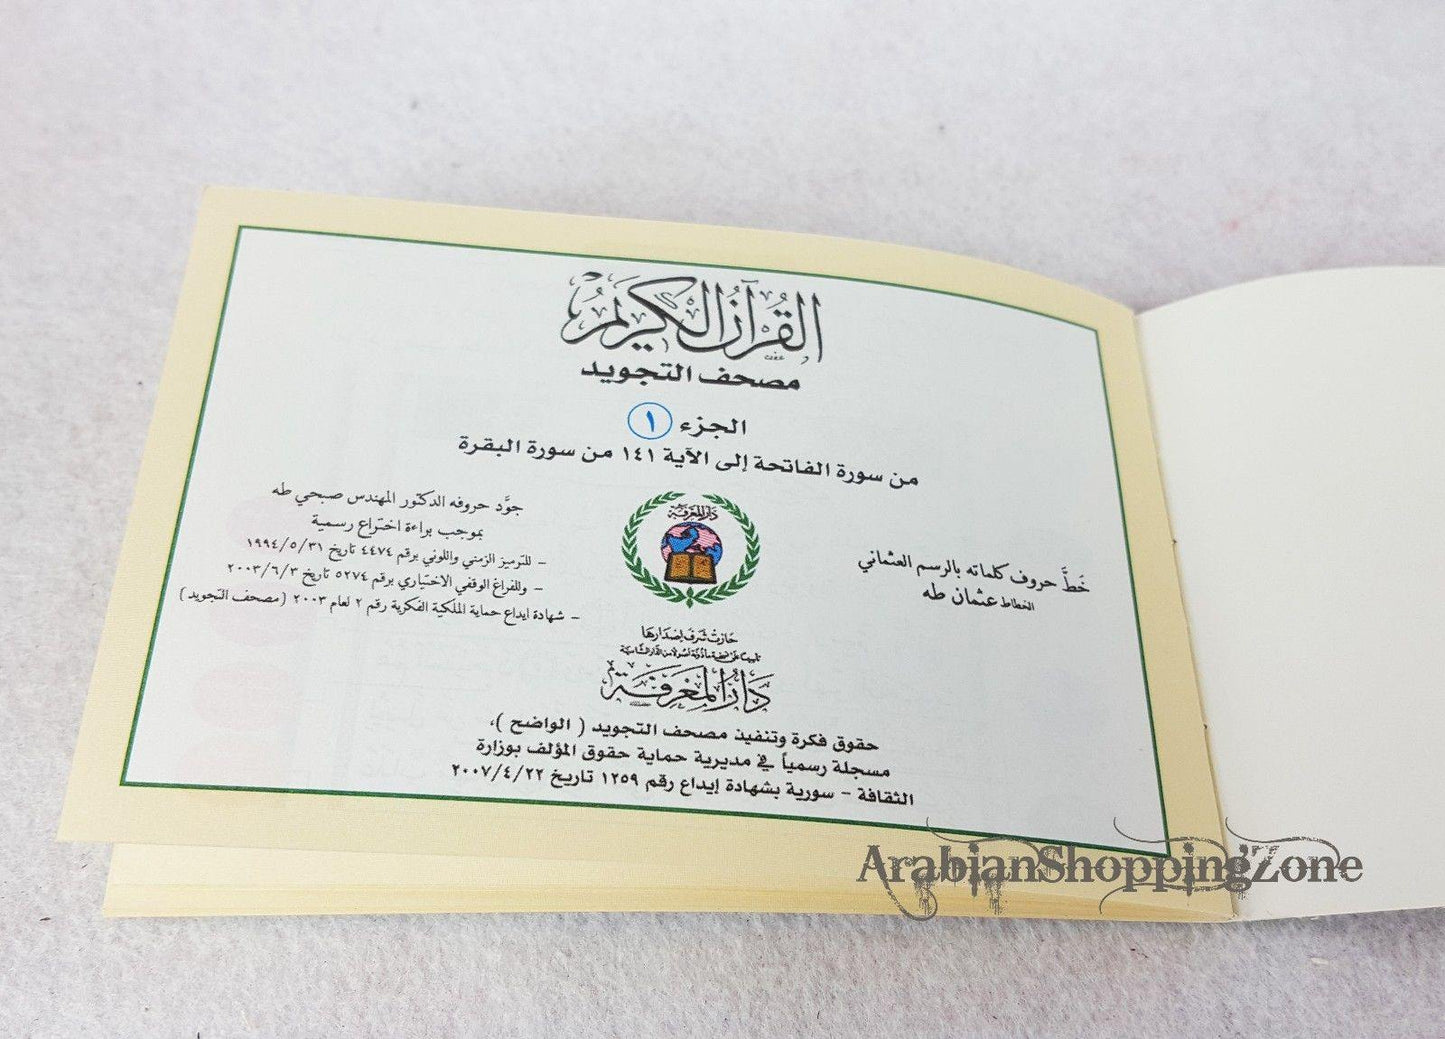 القرآن الكريم
مصحف التجويد
الجزء ١
من سورة الفاتحة إلى الآية ١٤١ من سورة البقرة
خَطَّ حروف كلماته بالرسم العثماني
الخطاط عثمان طه
جوَّد حروفه الدكتور المهندس صبحي طه
بموجب براءة اختراع رسمية
- للترميز الزمني واللوني برقم ٤٤٧٤ تاريخ ١٩٩٤/٥/٣١
- وللفراغ الوقفي الاختياري برقم ٥٢٧٤ تاريخ ٢٠٠٣/٦/٣
- شهادة إيداع حماية الملكية الفكرية رقم ٢ لعام ٢٠٠٣ (مصحف التجويد)
دار المعرفة
حازت شرف إصدارها
دار المعرفة
حقوق فكرة وتنفيذ مصحف التجويد ( الواضح )،
مسجلة رسمياً في مديرية حماية حقوق المؤلف بوزارة
الثقافة - سورية بشهادة إيداع رقم ١٢٥٩ تاريخ ٢٠٠٧/٤/٢٢
ArabianShoppingZone